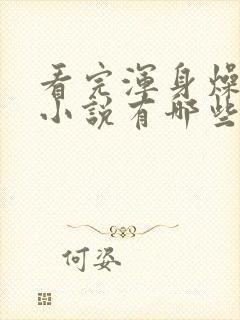 看完渾身燥
小說有哪些
何姿